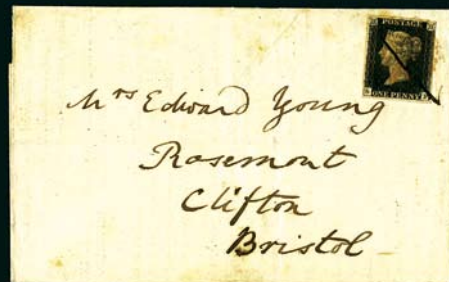 POSTAGE
ONE PENNY
Mrs Edward Young
Rosemont
Clifton
Bristol